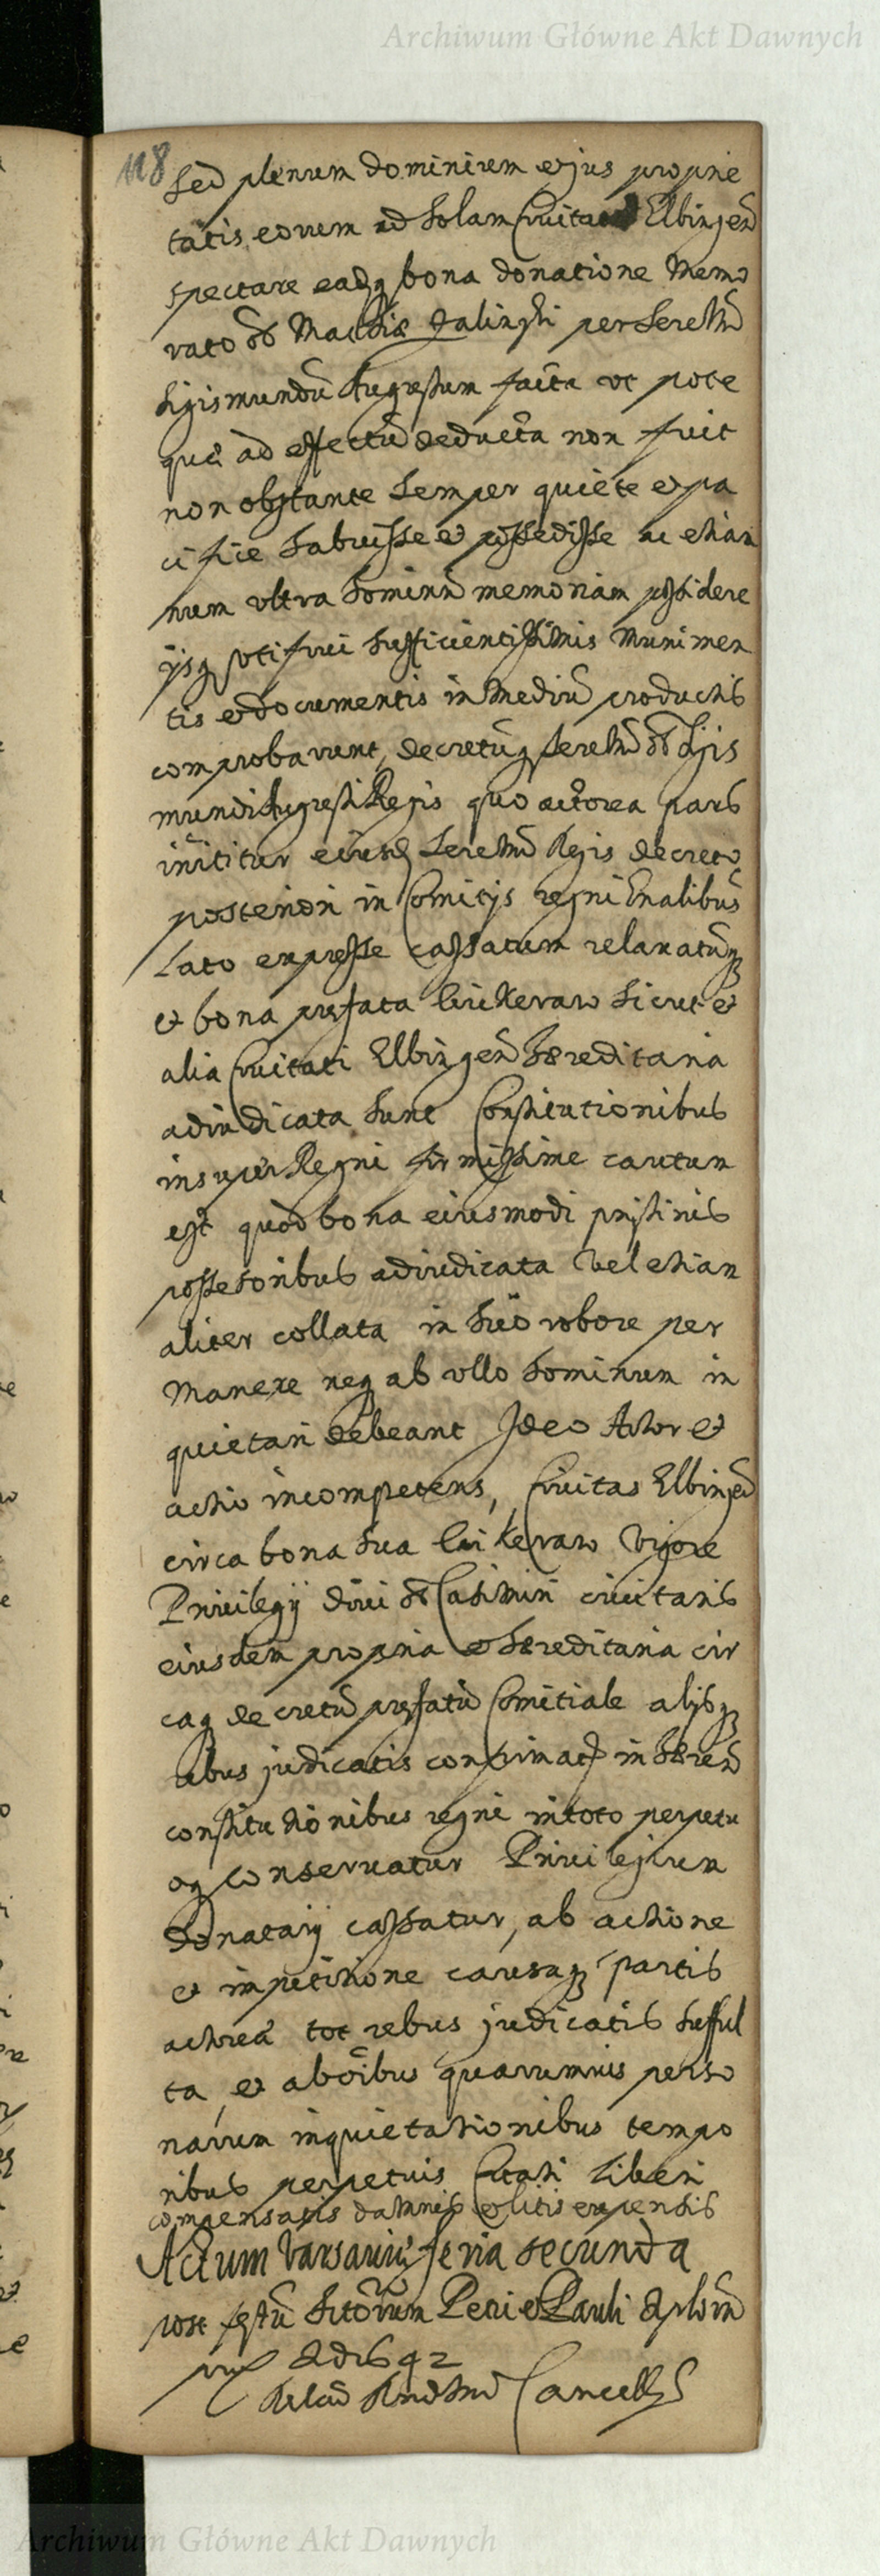 Archiwum Główne Akt Dawnych
118
sed plenum dominium ejus proprie
tatis eorum ad solam Elbingen
spectare eadq bona donatione memo
rato ol Mathiæ Zalinski per Seremu
Sigismundu Augustum facta ut pote
quæ ad effectu deducta non fuit
non obstante semper quiete et pa
cifice habuisse et possedisse ac etiam
num ultra hominu memoriam possidere
ijsq uti frui sufficientissimis munimen
tis et documentis in mediu productis
comprobarunt, decretuq Seremi ol Sigis
mundi Augusti Regis quo actorea pars
innititur eiusd Seremi Regis decreto
posteriori in Comitijs regni gnalibus
lato expresse cassatum relaxatuq
et bona prefata sicut et
alia Civitati Elbingen hæreditaria
adiudicata sunt Constitutionibus
insuper Regni firmissime cautum
est quod bona eiusmodi pristinis
possessoribus adiudicata vel etiam
aliter collata in suo robore per
manere neq ab ullo hominum in
quietari debeant Ideo Actor et
actio incompetens, Civitas Elbingen
circa bona sua vigore
Privilegij divi ol Casimiri civitatis
eiusdem propria et hæreditaria cir
caq decretu prefatu Comitiale alijsq
ebus judicatis in hæren
constitutionibus regni in toto perpetu
oq conservatur Privilegium
donatarij cassatur, ab actione
et impetitione causaq partis
actoreæ tot rebus judicatis sufful
ta et ab oibus quarumvis perso
narum inquietationibus tempo
ribus perpetuis Citati liberi
compensatis damnis et litis expensis
Actum Varsaviæ feria secunda
post festu Sctorum Petri et Pauli Aplorum
Cancell
Archiwum Główne Akt Dawnych